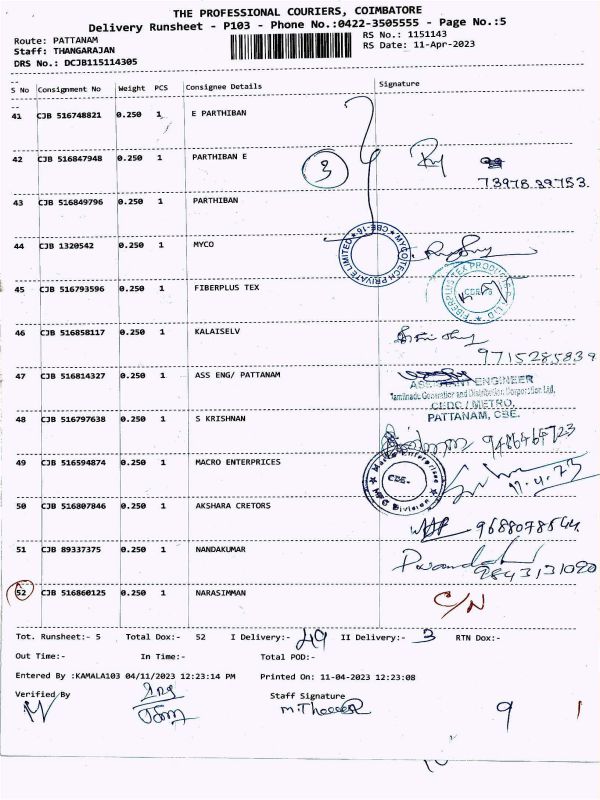 THE PROFESSIONAL COURIERS, COIMBATORE
Delivery Runsheet - P103 - Phone No.:0422-3505555 - Page No.:5
Route: PATTANAM
RS No.: 1151143
Staff: THANGARAJAN
RS Date: 11-Apr-2023
DRS No.: DCJB115114305
S No Consignment No Weight PCS Consignee Details Signature
41 CJB 516748821 0.250 1 E PARTHIBAN
42 CJB 516847948 0.250 1 PARTHIBAN E
3
73978 39753.
43 CJB 516849796 0.250 1 PARTHIBAN
44 CJB 1320542 0.250 1 MYCO
MYCOTECH PRIVATE LIMITED CBE-16
45 CJB 516793596 0.250 1 FIBERPLUS TEX
46 CJB 516858117 0.250 1 KALAISELV
9715285839
47 CJB 516814327 0.250 1 ASS ENG/ PATTANAM
ASSISTANT ENGINEER
Tamilnadu Generation and Distribution Corporation Ltd,
CEDC / METRO,
PATTANAM, CBE.
48 CJB 516797638 0.250 1 S KRISHNAN
49 CJB 516594874 0.250 1 MACRO ENTERPRICES
Macro Enterprises CBE- MFG Division
11.4.23
50 CJB 516807846 0.250 1 AKSHARA CRETORS
9688078544
51 CJB 89337375 0.250 1 NANDAKUMAR
9843131090
52 CJB 516860125 0.250 1 NARASIMMAN
C/N
Tot. Runsheet:- 5 Total Dox:- 52 I Delivery:- 49 II Delivery:- 3 RTN Dox:-
Out Time:- In Time:- Total POD:-
Entered By :KAMALA103 04/11/2023 12:23:14 PM Printed On: 11-04-2023 12:23:08
Verified By Staff Signature
9 1